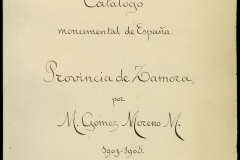 Catálogo
monumental de España
Provincia de Zamora,
por
M. Gómez-Moreno M.
1903-1905.